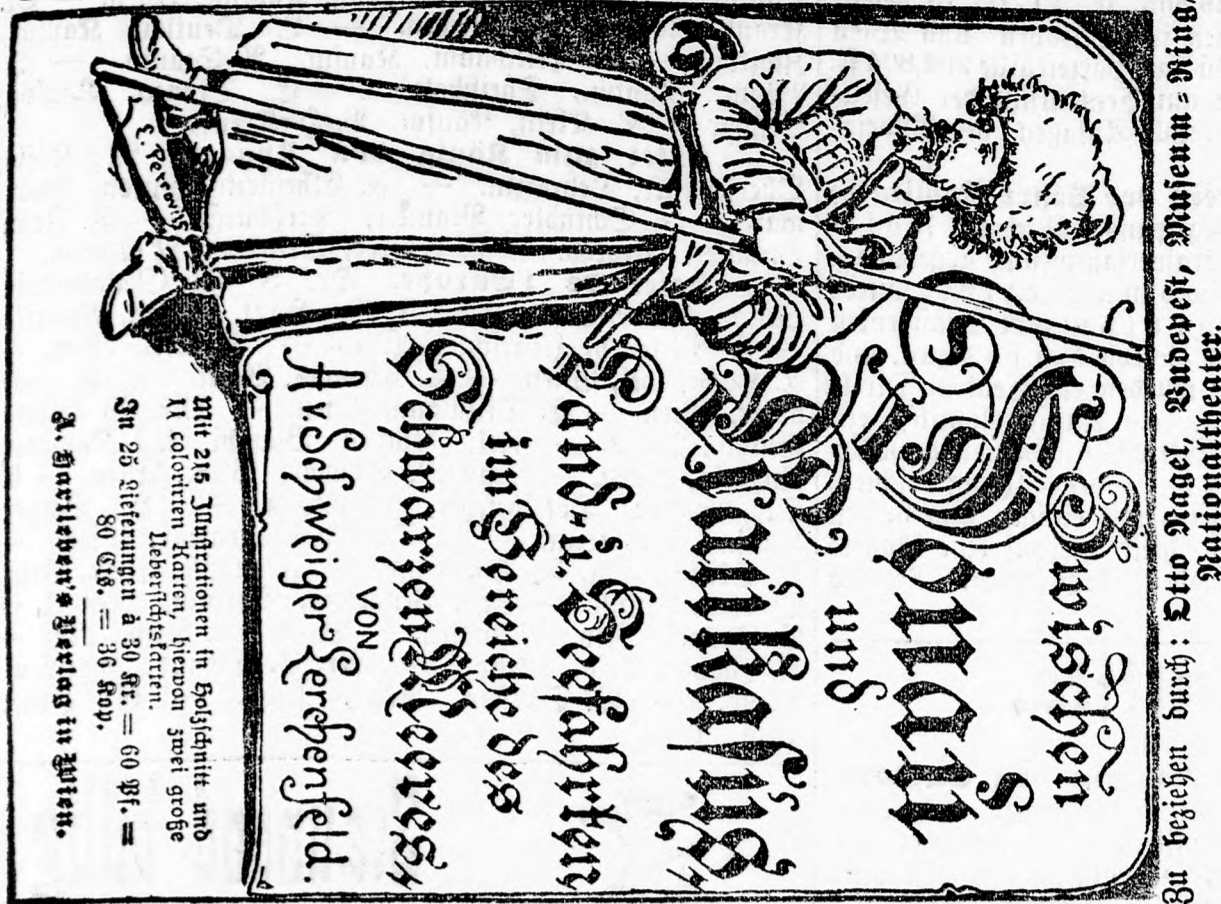 Zwischen
Donau
und
Kaukasus
Land- u. Seefahrten
im Bereiche des
Schwarzen Meeres
VON
A. v. Schweiger Lerchenfeld
Mit 215 Illustrationen in Holzschnitt und
11 colorirten Karten, hiervon zwei große
Uebersichtskarten.
In 25 Lieferungen à 30 Kr. = 60 Pf. =
80 Cts. = 36 Kop.
A. Hartleben's Verlag in Wien.
Zu beziehen durch: Otto Nagel, Budapest, Museum-Ring,
Nationaltheater